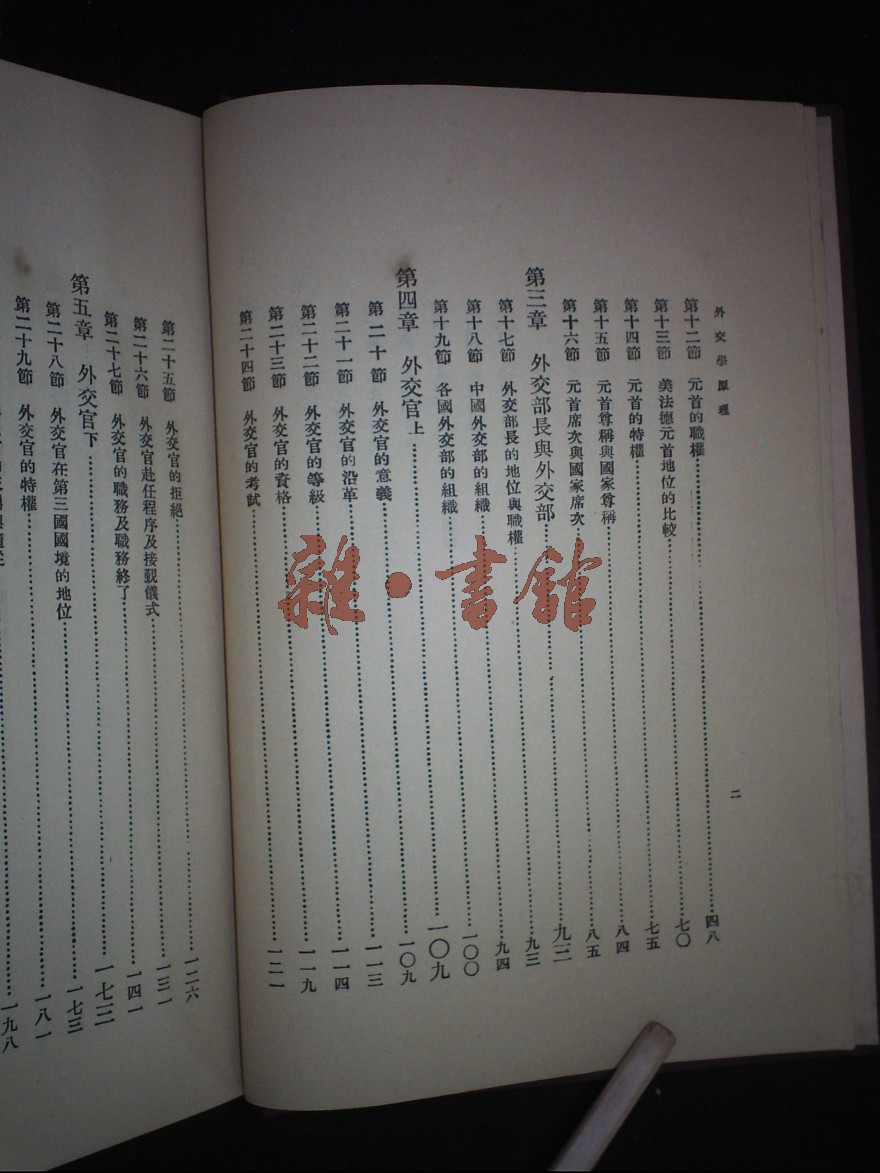 外交學原理
二
第十二節 元首的職權……四八
第十三節 美法德元首地位的比較……七〇
第十四節 元首的特權……七五
第十五節 元首尊稱與國家尊稱……八四
第十六節 元首席次與國家席次……八五
第三章 外交部長與外交部……九二
第十七節 外交部長的地位與職權……九三
第十八節 中國外交部的組織……九四
第十九節 各國外交部的組織……一〇〇
第四章 外交官上……一〇九
第二十節 外交官的意義……一〇九
第二十一節 外交官的沿革……一一三
第二十二節 外交官的等級……一一四
第二十三節 外交官的資格……一一九
第二十四節 外交官的考試……一二一
第二十五節 外交官的拒絕……一二六
第二十六節 外交官赴任程序及接覲儀式……一三一
第二十七節 外交官的職務及職務終了……一四一
第五章 外交官下……一七二
第二十八節 外交官在第三國國境的地位……一七三
第二十九節 外交官的特權……一八一
一九八
雜·書館